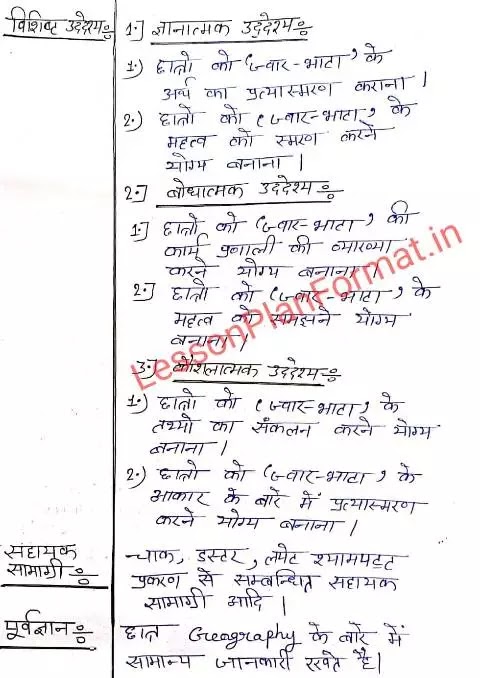 विशिष्ट उद्देश्य:
1.] ज्ञानात्मक उद्देश्य:
1.) छात्रो को 'ज्वार-भाटा' के
अर्थ का प्रत्यास्मरण कराना।
2.) छात्रो को 'ज्वार-भाटा' के
महत्व को स्मरण करने
योग्य बनाना।
2.] बोधात्मक उद्देश्य:
1.] छात्रो को 'ज्वार-भाटा' की
कार्य प्रणाली की व्याख्या
करने योग्य बनाना।
2.] छात्रो को 'ज्वार-भाटा' के
महत्व को समझने योग्य
बनाना।
3.] कौशलात्मक उद्देश्य:
1.) छात्रो को 'ज्वार-भाटा' के
तथ्यो का संकलन करने योग्य
बनाना।
2.) छात्रो को 'ज्वार-भाटा' के
आकार के बारे में प्रत्यास्मरण
करने योग्य बनाना।
सहायक
सामाग्री:
चाक, डस्टर, लपेट श्यामपट्ट
प्रकरण से सम्बन्धित सहायक
सामाग्री आदि।
पूर्वज्ञान:
छात्र Greagraphy के बारे में
सामान्य जानकारी रखते है।
LessonPlanFormat.in